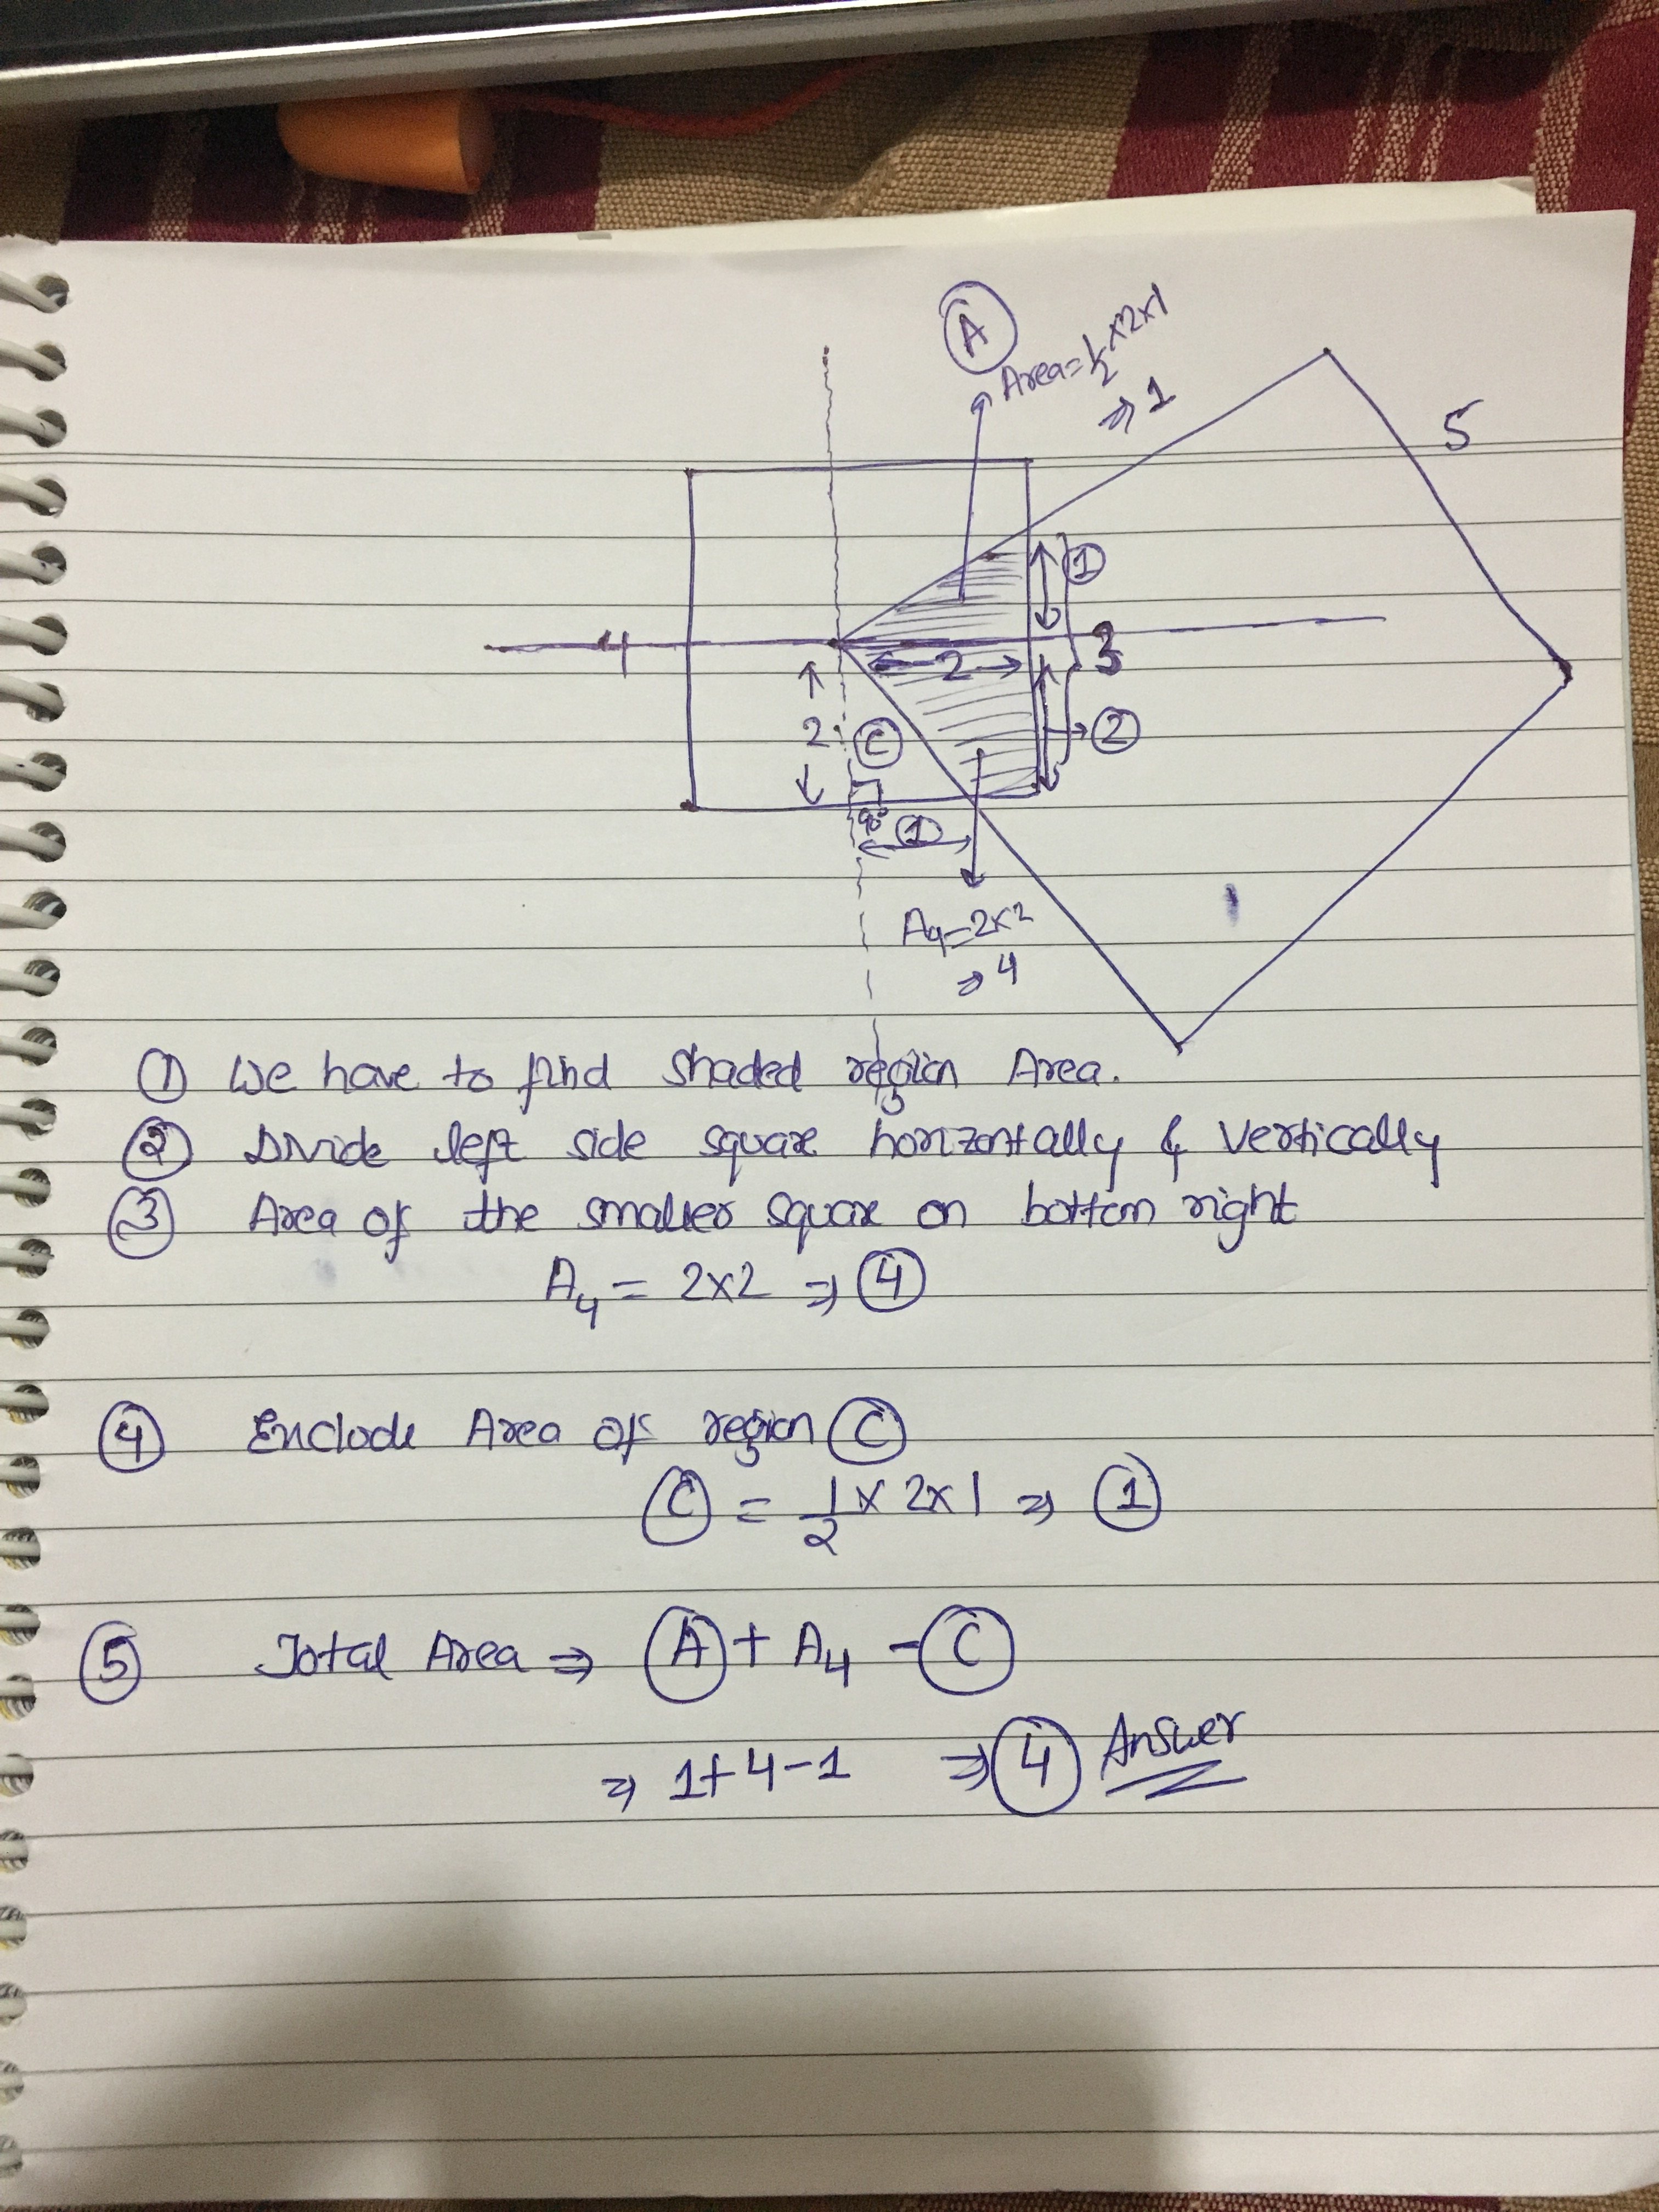 A
Area = 1/2 × 2 × 1
⇒ 1
5
1
4
2
3
2
C
2
90°
1
A4 = 2×2
⇒ 4
① We have to find shaded region Area.
② Divide left side square horizontally & vertically
③ Area of the smaller square on bottom right
A4 = 2×2 ⇒ 4
④ Exclude Area of region C
C = 1/2 × 2×1 ⇒ 1
⑤ Total Area ⇒ A + A4 - C
⇒ 1+4-1 ⇒ 4 Answer